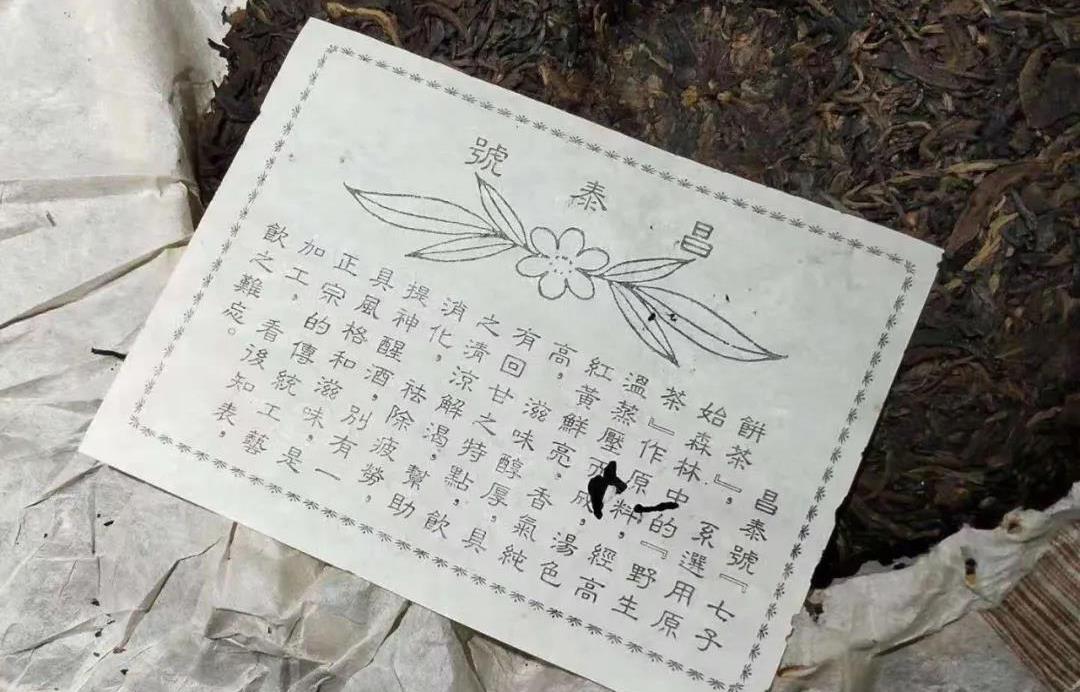 昌泰號
昌泰號『七子
餅茶』,系選用原
始森林中的『野生
茶』作原料,經高
溫蒸壓而成,湯色
紅黃鮮亮,香氣純
高,滋味醇厚,具
有回甘之特點,飲
之清涼解渴,幫助
消化,祛除疲勞,
提神醒酒,別有一
具風格和滋味,是
正宗的傳統工藝
加工,看後知表,
飲之難忘。